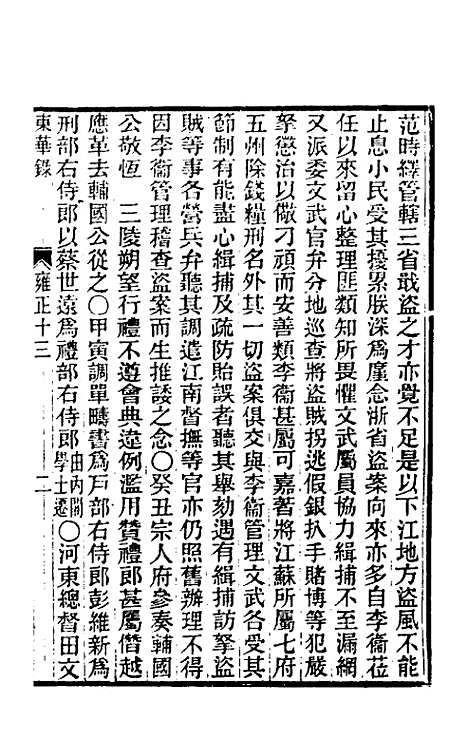 范時繹管轄三省戢盜之才亦覺不足是以下江地方盜風不能
止息小民受其擾累朕深爲廑念浙省盜案向來亦多自李衞莅
任以來留心整理匪類知所畏懼文武屬員協力緝捕不至漏網
又派委文武官弁分地巡查將盜賊拐逃假銀扒手賭博等犯嚴
拏懲治以儆刁頑而安善類李衞甚屬可嘉著將江蘇所屬七府
五州除錢糧刑名外其一切盜案俱交與李衞管理文武各受其
節制有能盡心緝捕及疏防貽誤者聽其舉劾遇有緝捕訪拏盜
賊等事各營兵弁聽其調遣江南督撫等官亦仍照舊辦理不得
因李衞管理稽查盜案而生推諉之念〇癸丑宗人府參奏輔國
公敬恆　三陵朔望行禮不遵會典違例濫用贊禮郎甚屬僭越
應革去輔國公從之〇甲寅調單疇書爲戶部右侍郎彭維新爲
刑部右侍郎以蔡世遠爲禮部右侍郎由內閣學士遷〇河東總督田文
東華錄　雍正十三　二